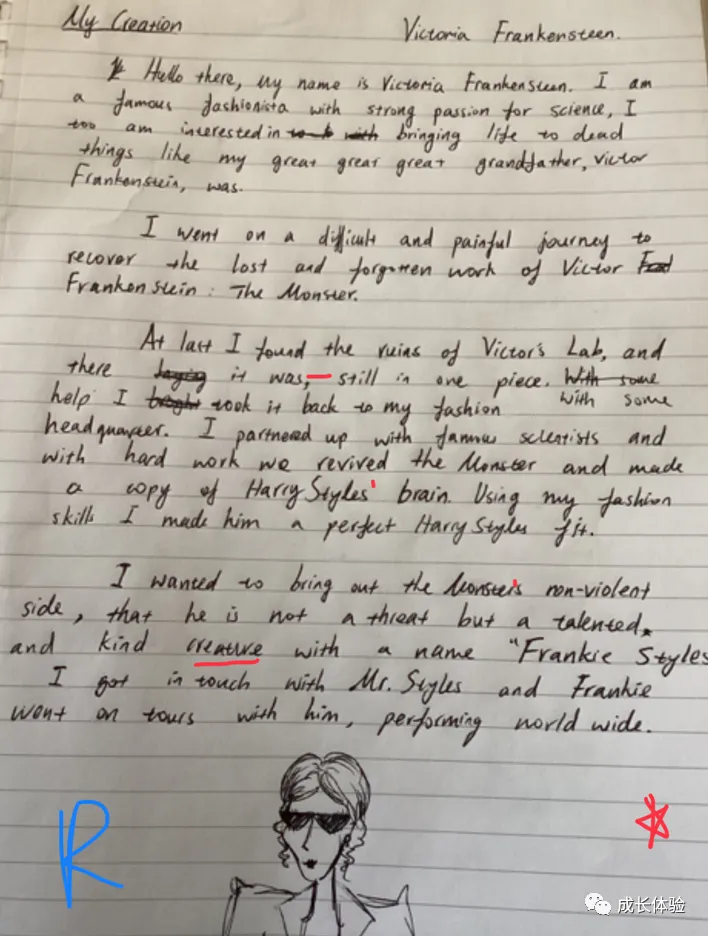 My Creation
Victoria Frankensteen.
Hello there, my name is Victoria Frankensteen. I am
a famous fashionista with strong passion for science, I
too am interested in bringing life to dead
things like my great great great grandfather, Victor
Frankenstein, was.
I went on a difficult and painful journey to
recover the lost and forgotten work of Victor
Frankenstein: The Monster.
At last I found the ruins of Victor's Lab, and
there laying it was, still in one piece. With some
help I brought took it back to my fashion with some
headquarter. I partnered up with famus scientists and
with hard work we revived the Monster and made
a copy of Harry Styles' brain. Using my fashion
skills I made him a perfect Harry Styles fit.
I wanted to bring out the Monster's non-violent
side, that he is not a threat but a talented
and kind creature with a name "Frankie Styles
I got in touch with Mr. Styles and Frankie
went on tours with him, performing world wide.
R
成长体验